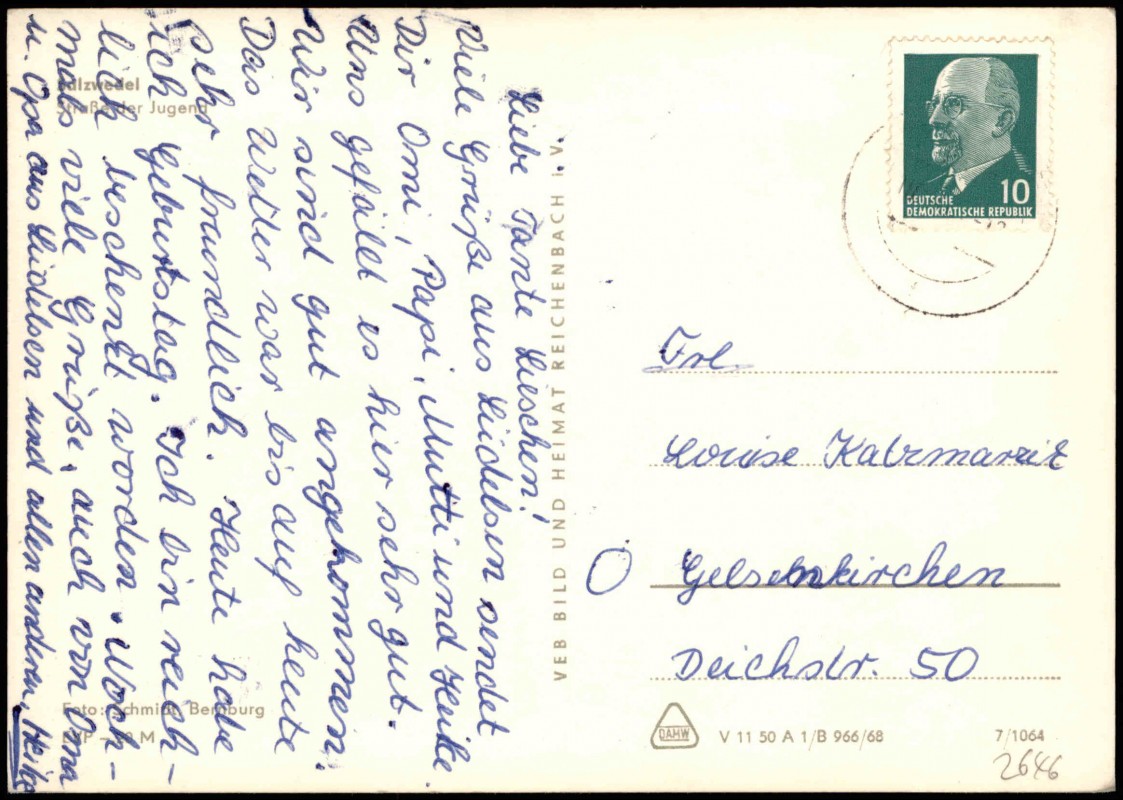 Salzwedel
Straße der Jugend
Liebe Tante Lieschen!
Viele Grüße aus Leidelsen sendet
Dir Omi, Papi, Mutti und Heike.
Uns gefällt es hier sehr gut.
Wir sind gut angekommen.
Das Wetter war bis auf heute
sehr freundlich. Heute habe
ich Geburtstag. Ich bin reich-
lich beschenkt worden. Noch-
mals viele Grüße, auch von Oma
u. Opa aus Leidelsen und allen anderen, Heike
Foto: Schmidt, Bernburg
M
VEB BILD UND HEIMAT REICHENBACH i. V.
DEUTSCHE
DEMOKRATISCHE REPUBLIK
10
Frl.
Louise Kalzmarzik
Gelsenkirchen
Deichstr. 50
DAHW
V 11 50 A 1/B 966/68
7/1064
2646